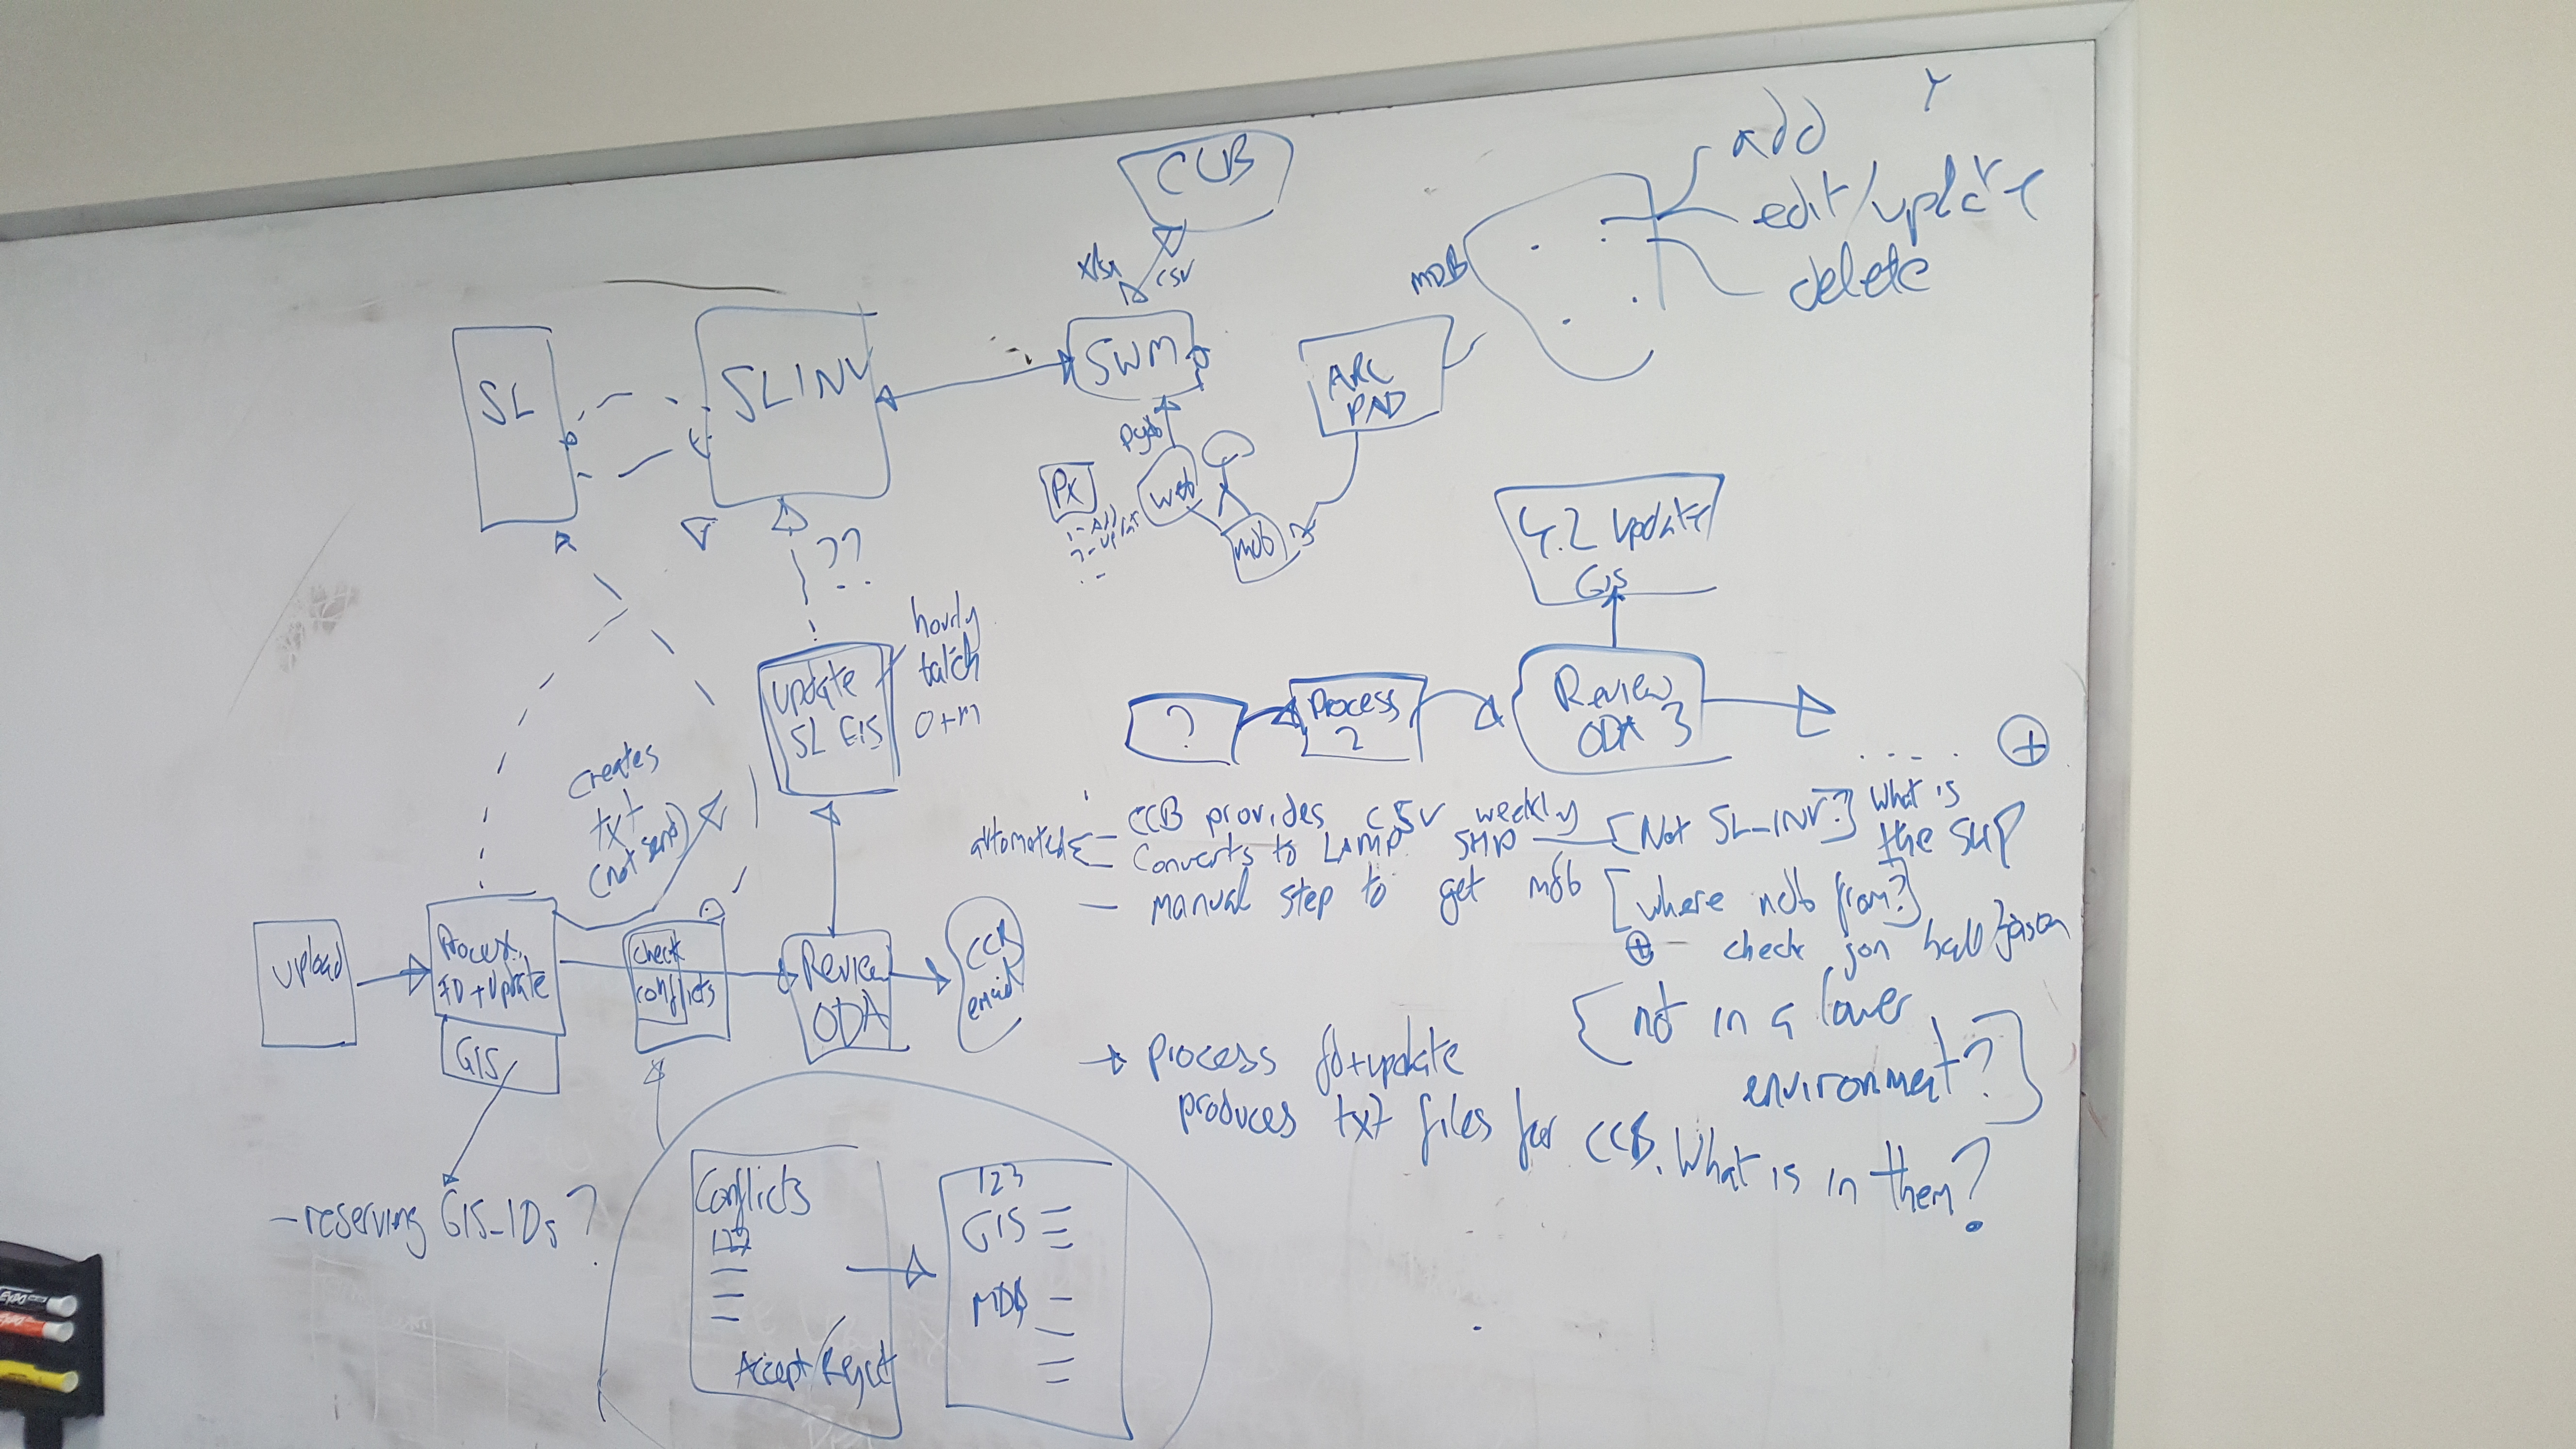 CCB
add
edit/update
delete
MDB
csv
SL
SLINV
SWM
ARC
PAD
PX
web
mdb
4.2 update
GIS
??
hourly
batch
O+M
update
SL GIS
?
Process
2
Review
ODA 3
creates
txt
(not send)
automated
- CCB provides CSV weekly
- Converts to LAMP SHP [Not SL_INV?] What is
the SHP
- manual step to get mdb [where mdb from?]
check jon
upload
Process
FD + Update
GIS
check
conflicts
Review
ODA
CCB
email
{not in a lower
environment?}
→ process fd+update
produces txt files for CCB. What is in them?
- reserving GIS_IDs ?
Conflicts
123
Accept/Reject
123
GIS
MDB
EXPO